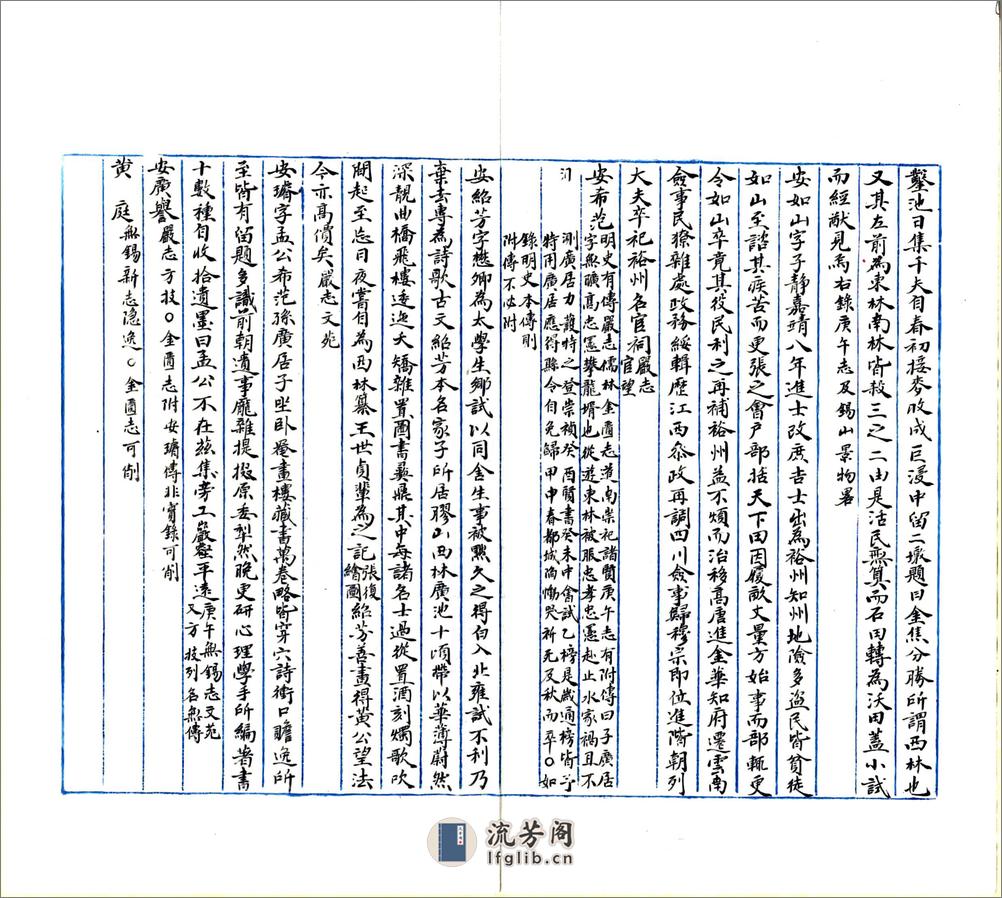 鑿池日集千夫自春初接麥敗成巨浸中留二墩題曰金焦分勝所謂西林也
又其左前為東林南林皆殺三之二由是活民無算而石田轉為沃田蓋小試
而經猷見焉右錄庚午志及錫山景物畧
安如山字子靜嘉靖八年進士改庶吉士出為裕州知州地險多盜民皆貧徒
如山至詔其疾苦而更張之會戶部括天下田因履畝丈量方始事而部輒更
令如山卒竟其役民利之再補裕州益不煩而治移高唐進金華知府遷雲南
僉事民獠雜處政務綏輯歷江西叅政再調四川僉事歸穆宗即位進階朝列
大夫卒祀裕州名宦祠嚴志宦望
安希范明史有傳嚴志儒林金匱志道南崇祀諸賢庚午志有附傳曰子廣居
字無曠高志憲攀龍壻也從遊東林被服忠孝忠憲赴止水家禍且不
測廣居力護持之登崇禎癸酉賢書癸未中會試乙榜是歲通榜皆予
特用廣居應得縣令自免歸甲申春都城陷慟哭祈死及秋而卒〇如
錄明史本傳則
附傳不必附
安紹芳字懋卿為太學生鄉試以同舍生事被黙久之得白入北雍試不利乃
棄去專為詩歌古文紹芳本名家子所居膠山西林廣池十頃帶以華薄蔚然
深靚曲橋飛樓逶迤夭矯雜置圖書彞鼎其中每諸名士過從置酒刻燭歌吹
間起至忘日夜嘗自為西林纂王世貞輩為之記張復繪圖紹芳善畫得黃公望法
今亦高價矣嚴志文苑
安璿字孟公希范孫廣居子坐卧罨畫樓藏書萬卷略皆穿穴詩衝口贍逸所
至皆有留題多識前朝遺事龐雜提掇原委犁然晚更研心理學手所編著書
十數種自收拾遺墨曰孟公不在茲集旁工巖壑平遠庚午無錫志文苑又方技列名無傳
安廣譽嚴志方技〇金匱志附安璿傳非實錄可削
黃 庭無錫新志隱逸〇金匱志可削
流芳阁
lfglib.cn